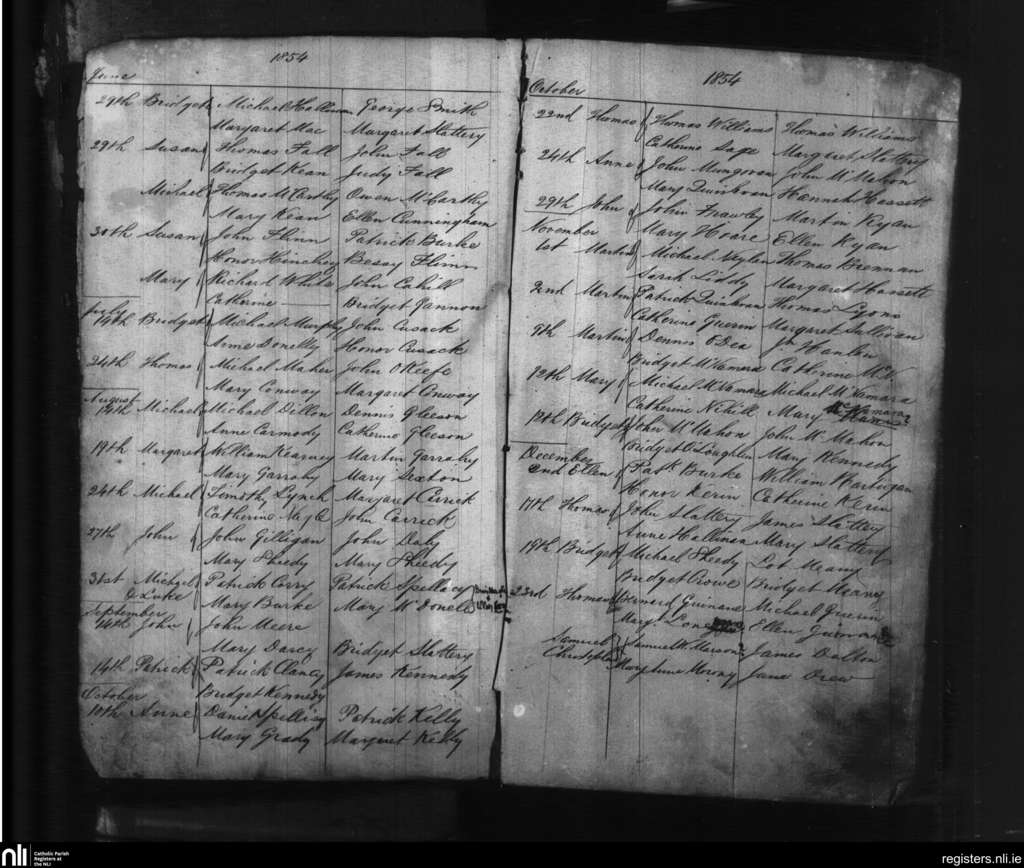 1854
June
29th Bridget Michael Hallinan George Smith
Margaret Mac Margaret Slattery
29th Susan Thomas Fall John Fall
Bridget Kean Judy Fall
Michael Thomas McCarthy Owen McCarthy
Mary Kean Ellen Cunningham
30th Susan John Flinn Patrick Burke
Honor Hinchey Bessy Flinn
Mary Richard White John Cahill
Catherine Bridget Gannon
July
14th Bridget Michael Murphy John Cusack
Anne Donelly Honor Cusack
24th Thomas Michael Maher John O'Keefe
Mary Conway Margaret Conway
August
14th Michael Michael Dillon Dennis Gleeson
Anne Carmody Catherine Gleeson
19th Margaret William Kearney Martin Garrahy
Mary Garrahy Mary Sexton
24th Michael Timothy Lynch Margaret Carrick
Catherine John Carrick
27th John John Gilligan John Daly
Mary Sheedy Mary Sheedy
31st Michael & Luke Patrick Corry Patrick Spellacy
Mary Burke Mary McDonell
September
14th John John Meere
Mary Darcy Bridget Slattery
14th Patrick Patrick Clancy James Kennedy
Bridget Kennedy
October
10th Anne Daniel Spellisy Patrick Kelly
Mary Grady Margaret Kelly
1854
October
22nd Thomas Thomas Williams Thomas Williams
Catherine Sage Margaret Slattery
24th Anne John Mungovan John McMahon
Mary Quinlivan Hannah Hassett
29th John John Frawley Martin Ryan
Mary Hoare Ellen Ryan
November
1st Martin Michael Neylon Thomas Brennan
Sarah Liddy Margaret Hassett
2nd Martin Patrick Quinlivan Thomas Lyons
Catherine Guerin Margaret Sullivan
9th Martin Dennis O'Dea Jn Hanlon
Bridget McNamara Catherine
12th Mary Michael McNamara Michael McNamara
Catherine Nihill Mary McNamara
12th Bridget John McMahon John McMahon
Bridget O'Loughlen Mary Kennedy
December
2nd Ellen Patk Burke William Hartigan
Honor Kerin Catherine Kerin
17th Thomas John Slattery James Slattery
Anne Hallinan Mary Slattery
19th Bridget Michael Sheedy Lot Meany
Bridget Crowe Bridget Meany
23rd Thomas Bernard Guinane Michael Guerin
Mary Ellen Guinane
Samuel Christopher Samuel W. James Dalton
Mary Anne Morony Jane Drew
nli Catholic Parish
Registers at
the NLI
registers.nli.ie